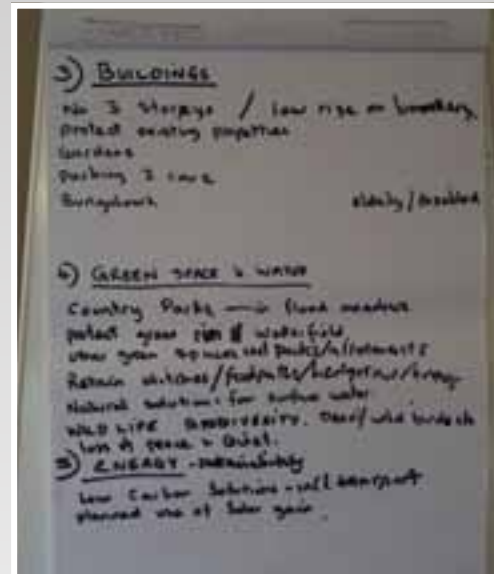 3) BUILDINGS
No 3 Storeys / low rise on boundary
protect existing properties
Gardens
parking 2 cars
Bungalows elderly/disabled
4) GREEN SPACE & WATER
Country Parks — in flood meadows
protect green rim of waterfield
urban green spaces incl parks/allotments
Retain ditches/footpaths/hedgerows/
Natural solutions for surface water
WILD LIFE BIODIVERSITY. Deer/wild birds
loss of peace & quiet.
5) ENERGY - sustainability
Low Carbon Solutions - incl transport
planned use of Solar gain